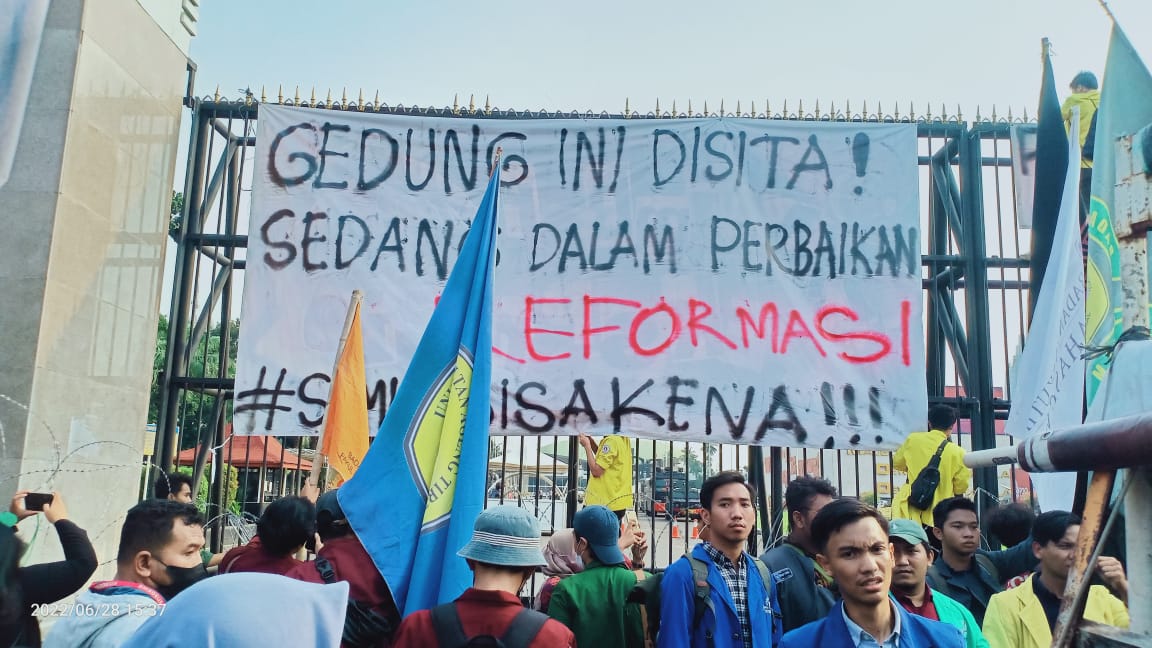 GEDUNG INI DISITA!
SEDANG DALAM PERBAIKAN
REFORMASI
BISAKENA!!!
2022/06/28 15:37